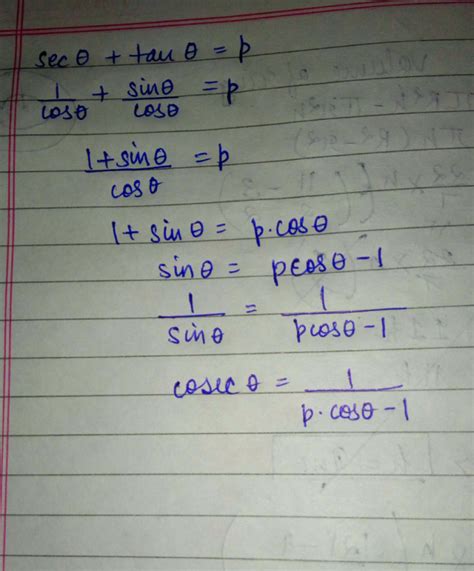 secθ + tanθ = p
1/cosθ + sinθ/cosθ = p
1+sinθ/cosθ = p
1 + sinθ = p.cosθ
sinθ = pcosθ - 1
1/sinθ = 1/pcosθ - 1
cosecθ = 1/p.cosθ - 1